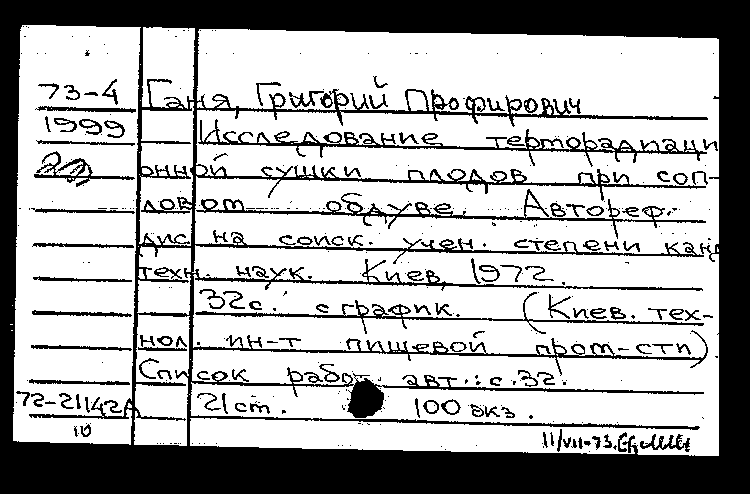 73-4 Ганя, Григорий Профирович
1999 Исследование терморадиаци
онной сушки плодов при соп-
ловом обдуве. Автореф.
дис на соиск. учен. степени канд
техн. наук. Киев, 1972.
32с. с график. (Киев. тех-
нол. ин-т пищевой пром-сти).
Список работ авт.: с. 32.
72-21142А 21 см. 100 экз.
10 11/VII-73.